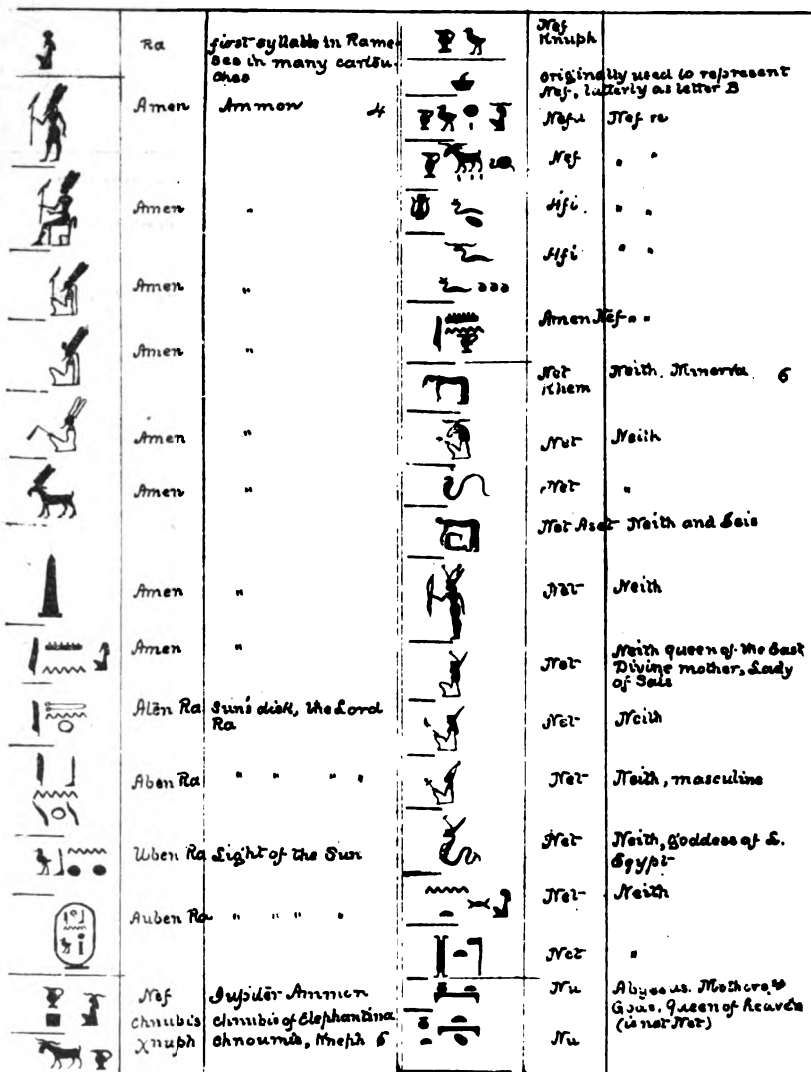 Ra first syllable in Rame-
ses in many cartou-
ches
Amen Ammon 4
Amen "
Amen "
Amen "
Amen "
Amen "
Amen "
Amen "
Aten Ra Sun's disk, the Lord
Ra
Aben Ra " " " "
Uben Ra Light of the Sun
Auben Ra " " " "
Nef Jupiter Ammon
Chnubis Chnubis of Elephantina
Xnuph Chnoumis, Kneph 5
Nef
Knuph
originally used to represent
Nef, latterly as letter B
Nefu Nef re
Nef " "
Hfi " "
Hfi " "
Amen Nef " "
Net Neith. Minerva 6
Khem
Net Neith
Net "
Net Aset Neith and Isis
Net Neith
Net Neith queen of the East
Divine mother, Lady
of Sais
Net Neith
Net Neith, masculine
Net Neith, Goddess of L.
Egypt
Net Neith
Net "
Nu Abyssus. Mothers,
Gods. Queen of heaven
(is not Net)
Nu